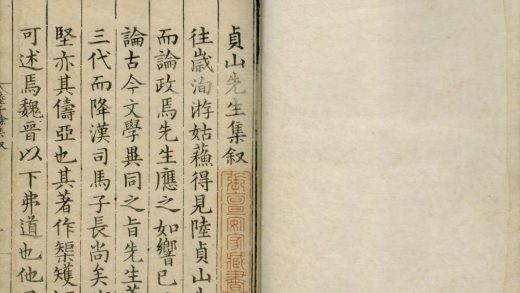 貞山先生集叙
家藏書
往歲洵游姑蘓得見陸貞山
而論政焉先生應之如響已
論古今文學異同之旨先生
三代而降漢司馬子長尚矣
堅亦其儔亞也其著作榘矱
可述焉魏晉以下弗道也他